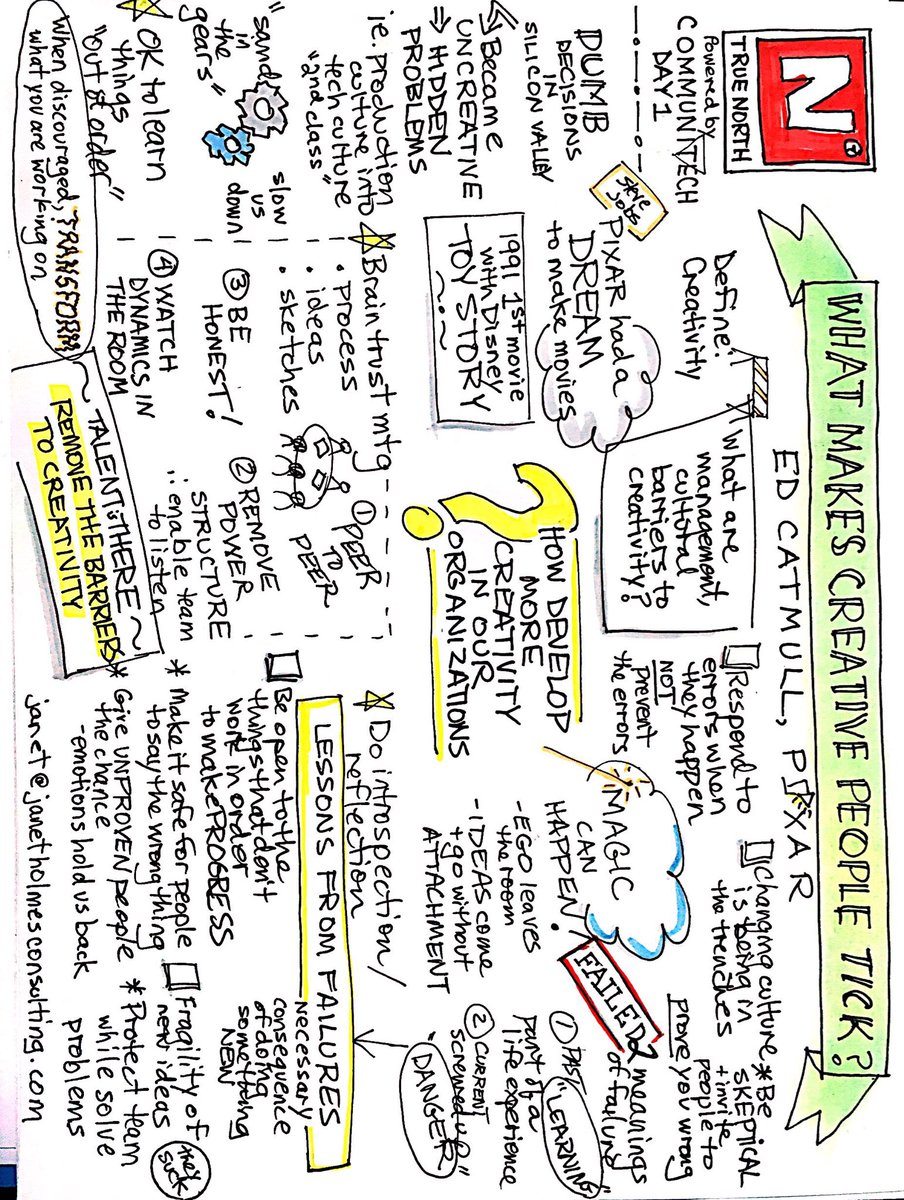 N
TRUE NORTH
Powered by
COMMUNITECH
DAY 1
WHAT MAKES CREATIVE PEOPLE TICK?
ED CATMULL, PIXAR
Define:
Creativity
What are
management,
cultural
barriers to
creativity?
DUMB
DECISIONS
IN
SILICON VALLEY
Became
UNCREATIVE
⇒ HIDDEN
PROBLEMS
ie. production
culture into
tech culture
"2nd class"
"sand
in
the
gears"
slow
us
down
OK to learn
things
"out of order"
When discouraged, TRANSFORM
what you are working on
Steve
Jobs
PIXAR had a
DREAM
to make movies
1991 1st movie
with Disney
TOY STORY
Braintrust mtg
• process
• ideas
• sketches
① PEER
TO
PEER
② REMOVE
POWER
STRUCTURE
∴ enable team
to listen
③ BE
HONEST!
④ WATCH
DYNAMICS IN
THE ROOM
~ TALENT IS THERE ~
REMOVE THE BARRIERS
TO CREATIVITY
? HOW DEVELOP
MORE
CREATIVITY
IN OUR
ORGANIZATIONS
Respond to
errors when
they happen
NOT
prevent
the errors
Changing culture
is being in
the trenches
* Be
SKEPTICAL
+ invite
people to
prove you wrong
MAGIC
CAN
HAPPEN!
- EGO leaves
the room
- IDEAS come
+ go without
ATTACHMENT
FAILED
2 meanings
of failure
① PAST "LEARNING"
part of a
life experience
② CURRENT
"screwed up"
DANGER
Do introspection/
reflection
LESSONS FROM FAILURES
Be open to the
things that don't
work in order
to make PROGRESS
* Make it safe for people
to say the wrong thing
* Give UNPROVEN people
the chance
- emotions hold us back
necessary
consequence
of doing
something
NEW
Fragility of
new ideas
they suck
* Protect team
while solve
problems
janet@janetholmesconsulting.com